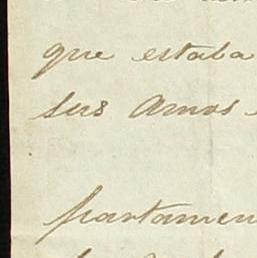 que estaba
sus Amos
partamen